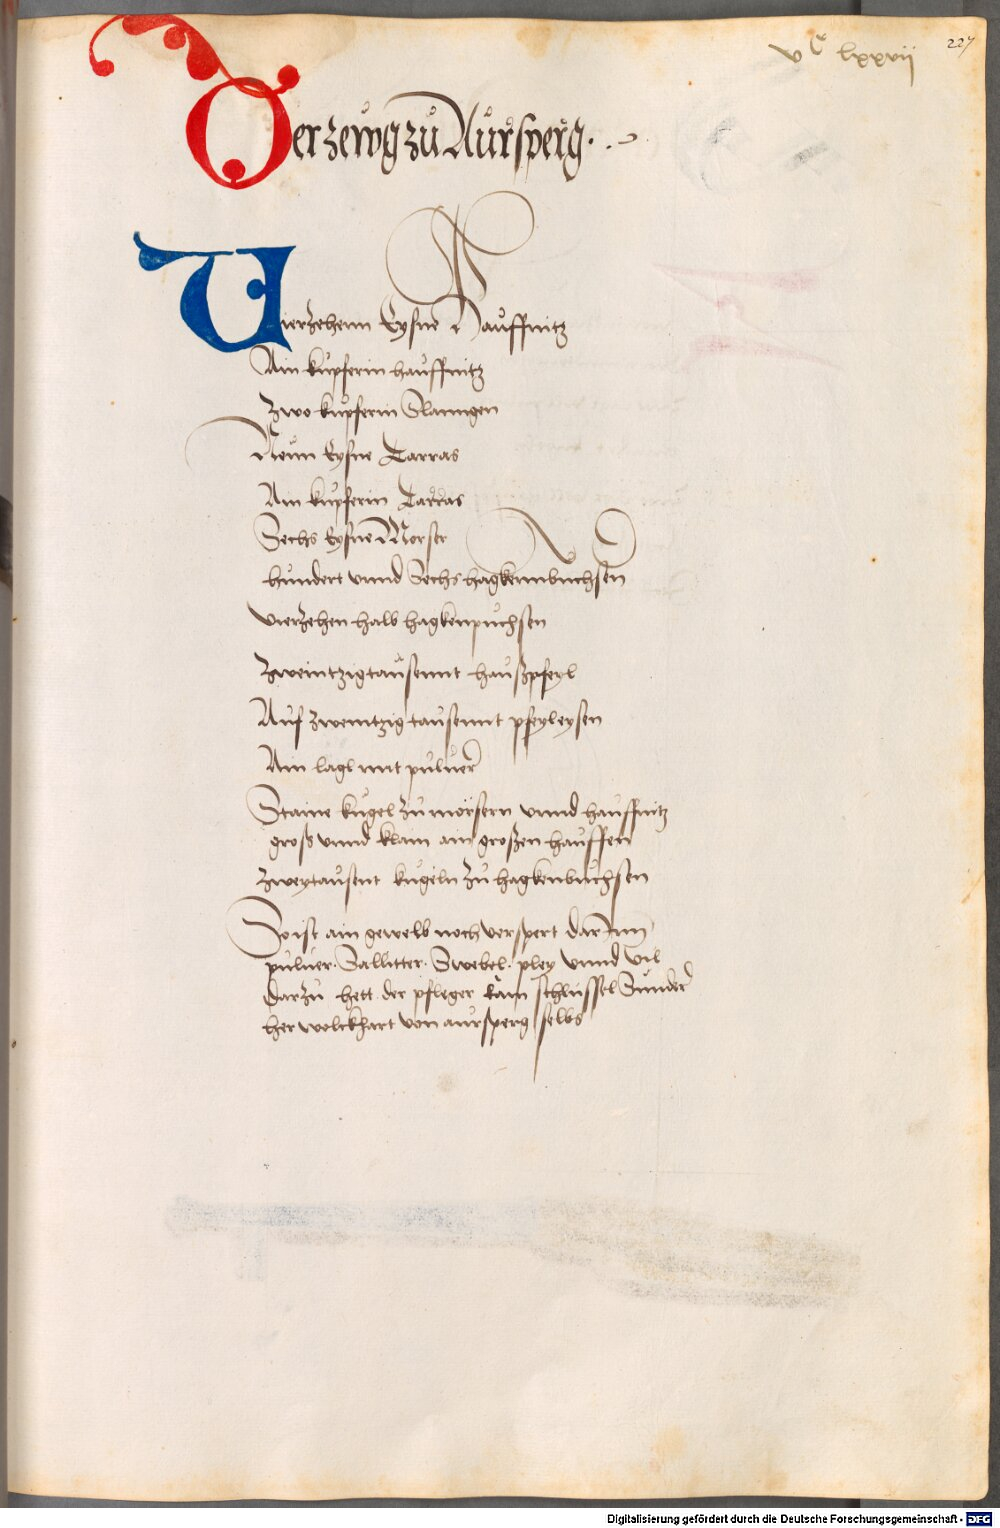 vᶜ lxxvii
227
Der zewg zů Aŭrsperg.
Vierzehenn Eysne Haŭffnitz
Ain kŭpferin haŭffnitz
Zwo kŭpferin Slanngen
Neŭn Eysne Tarras
Ain kŭpferin Tarras
Sechs Eysne Morser
hŭndert vnnd Sechs hagkennbuchsen
vierzehen halb hagkenpŭchsen
Zweintzigtaŭsennt haŭszpfeyl
Aŭf zweintzig taŭsennt pfeyleysen
Ain lagl mit pŭluer
Staine kŭgel zŭ mörsern vnnd haŭffnitz
gross vnnd klain ain groszen haŭffen
Zweytaŭsent kŭgeln zŭ hagkenbŭchsen
So ist ain gewelb noch verspert darInn
pŭluer. Sallitter. Swebel. pley vnnd vil
darzŭ hett der pfleger kain schlŭssel Sŭnder
her wolckhart von aŭrsperg selbs
Digitalisierung gefördert durch die Deutsche Forschungsgemeinschaft - DFG